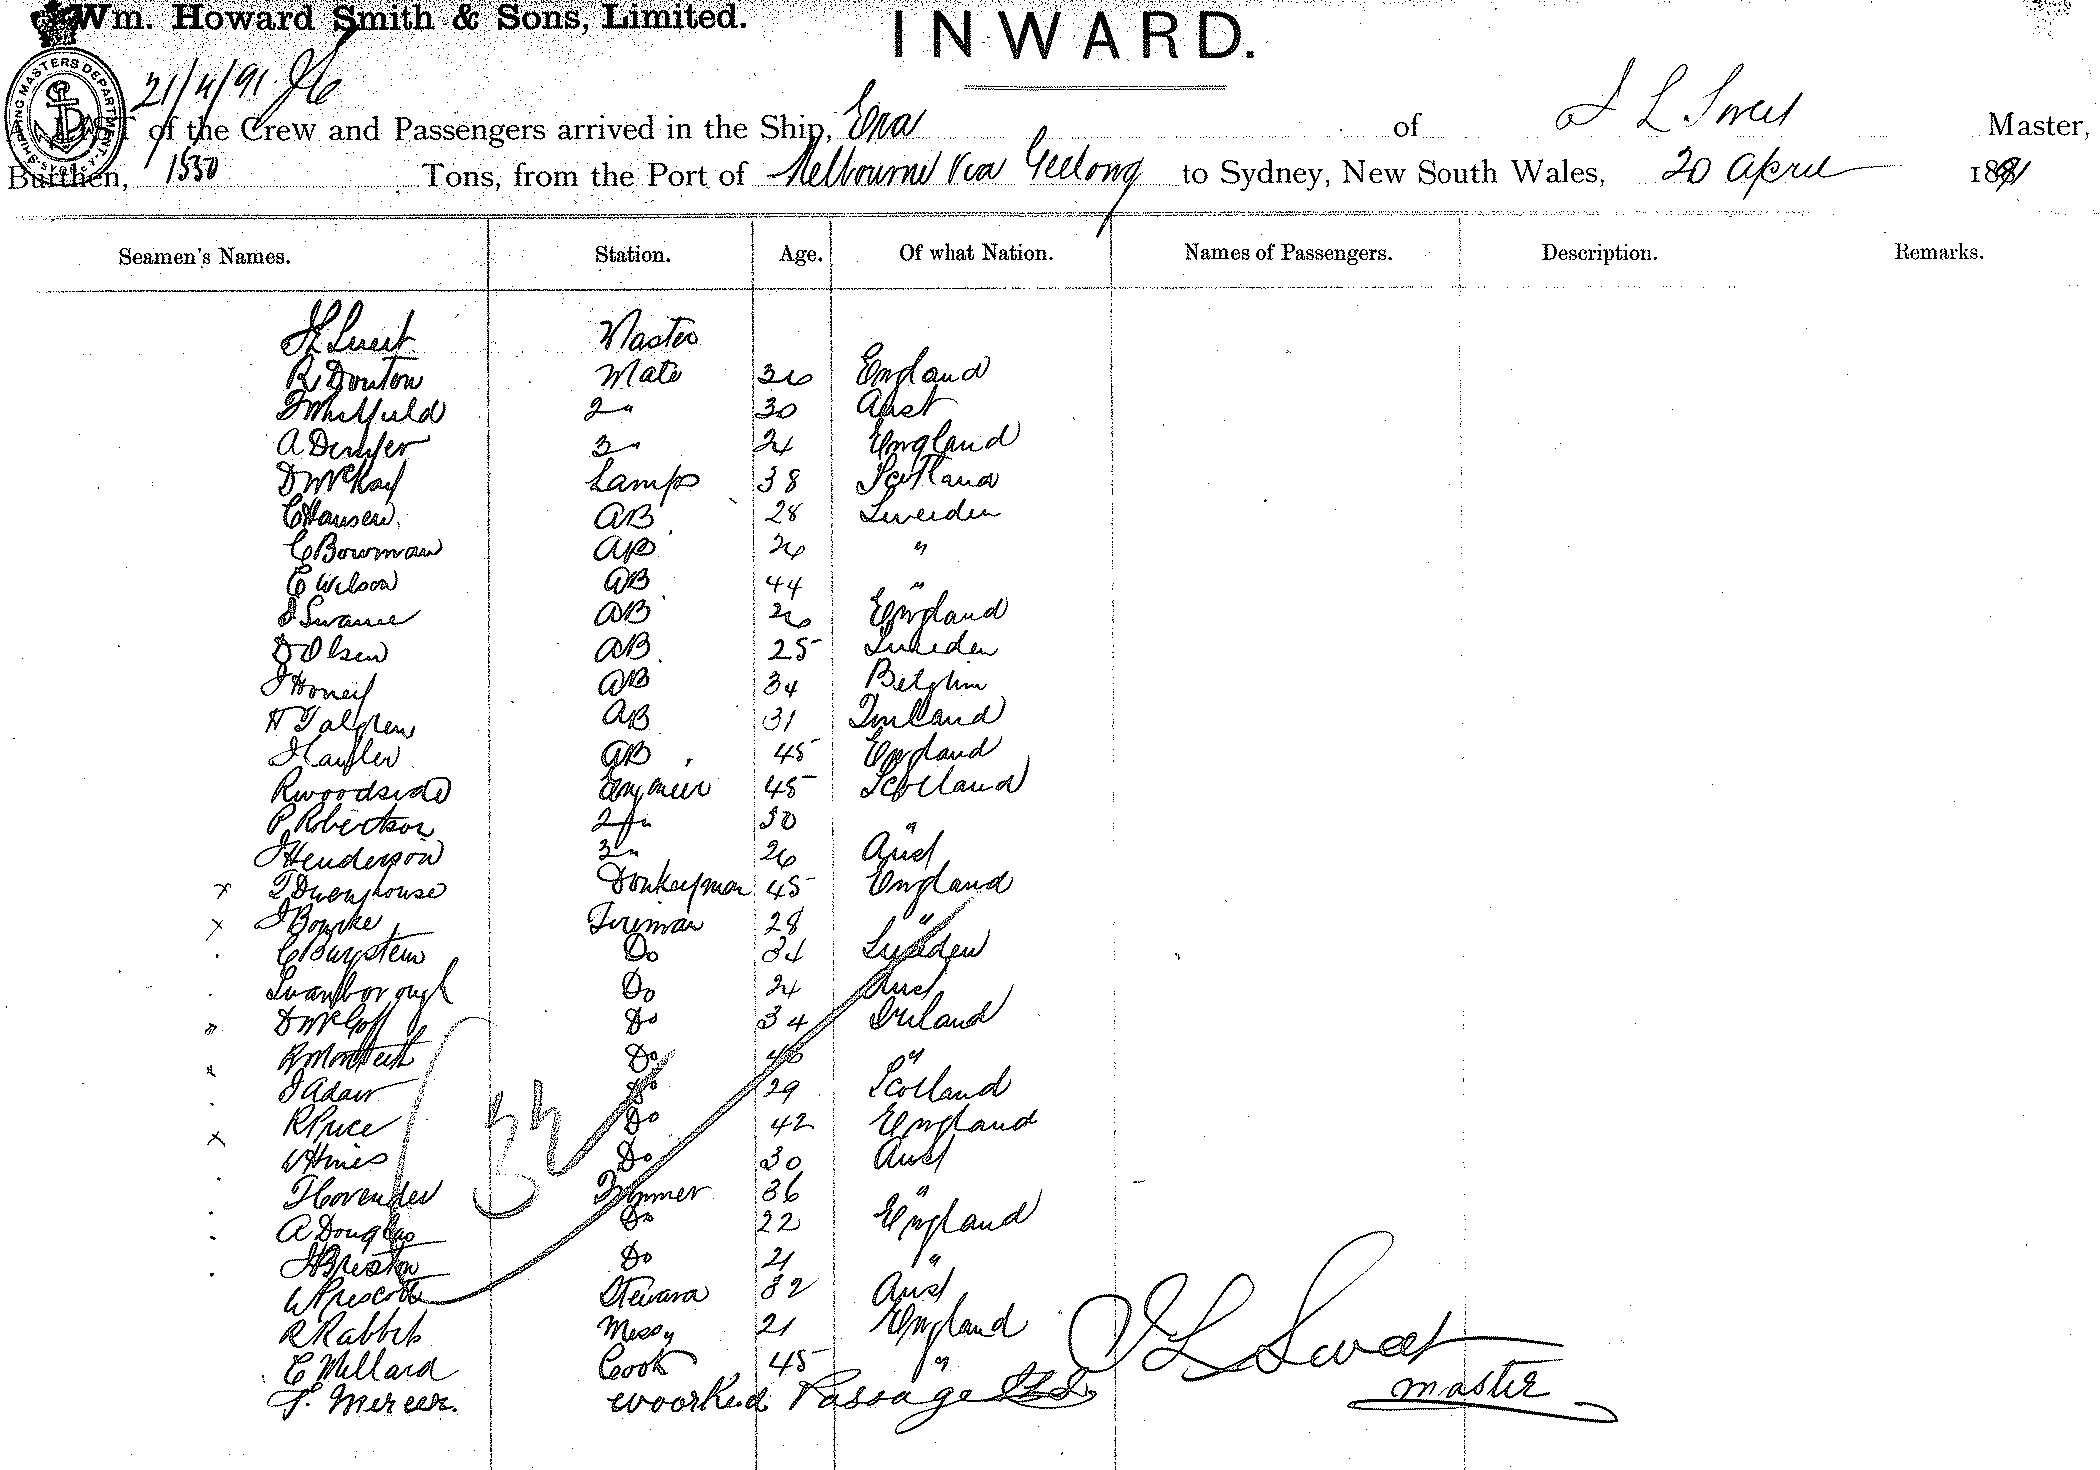 Wm. Howard Smith & Sons, Limited.
INWARD.
SHIPPING MASTERS DEPARTMENT
21/4/91
of the Crew and Passengers arrived in the Ship, Era of J L Sweet Master,
Burthen, 1550 Tons, from the Port of Melbourne via Geelong to Sydney, New South Wales, 20 April 1891
Seamen's Names. Station. Age. Of what Nation. Names of Passengers. Description. Remarks.
J L Sweet Master
R Douton Mate 36 England
2 " 30 Aust
A 3 " 24 England
D McKay Lamps 38 Scotland
C Hansen AB 28 Sweden
C Bowman AB 26 "
C Wilson AB 44 "
J Swanie AB 26 England
D Olsen AB 25 Sweden
J Honey AB 34 Belgium
H Talgren AB 31 Finland
J AB 45 England
R Woodside Engineer 45 Scotland
P Robertson 2 " 30 "
J Henderson 3 " 26 Aust
x T Donkeyman 45 England
x J Bourke Fireman 28 "
C Do 34 Sweden
Swanborough Do 24 Aust
D Do 34 Ireland
R Monteith Do "
J Adair Do 29 Scotland
x R Price Do 42 England
W Hines Do 30 Aust
T Covender Trimmer 36 "
A Douglas Do 22 England
Do 21 "
W Prescott Steward 32 Aust
R Rabbit Messy 21 England
C Millard Cook 45 "
Mercer. woorked Passage
J L Sweet
master